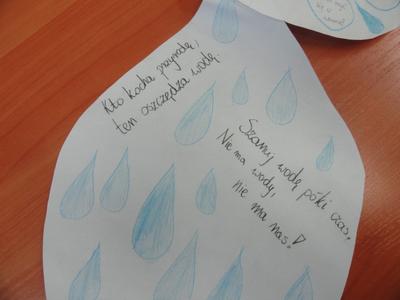 Kto kocha przyrodę,
ten oszczędza wodę.
Szanuj wodę póki czas,
Nie ma wody,
nie ma nas!